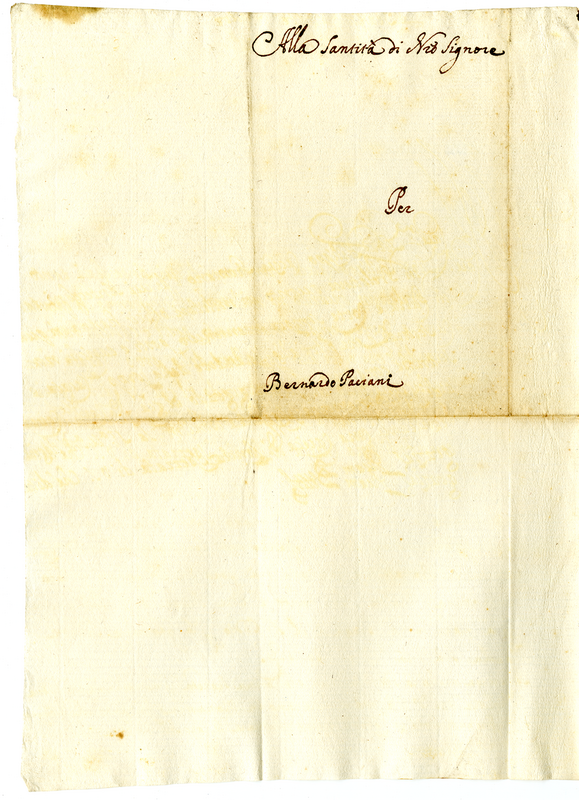 Alla Santità di Nrõ Signore
Per
Bernardo Paciani